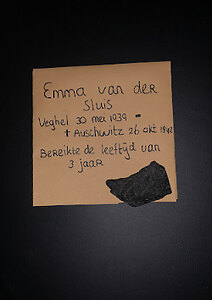 Emma van der
Sluis
Veghel 30 mei 1939 -
+ Auschwitz 26 okt 1942
Bereikte de leeftijd van
3 jaar